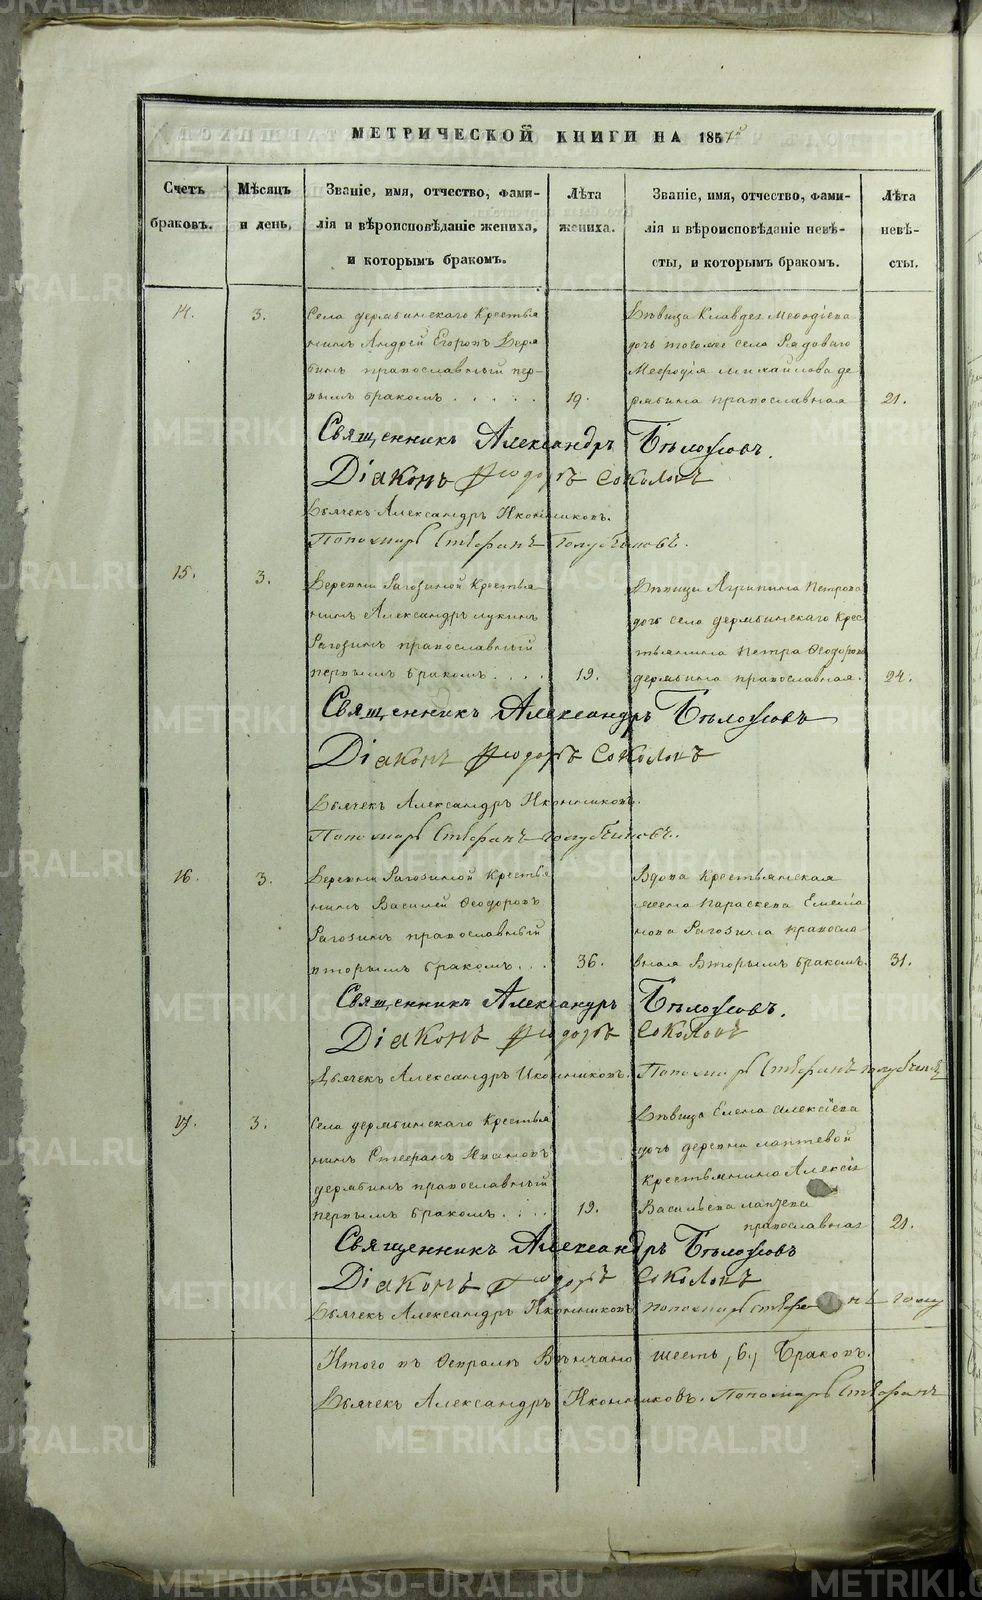 МЕТРИЧЕСКОЙ КНИГИ НА 1857й
Счетъ браковъ.
Мѣсяцъ и день.
Званіе, имя, отчество, фами-
лія и вѣроисповѣданіе жениха,
и которымъ бракомъ.
Лѣта жениха.
Званіе, имя, отчество, фами-
лія и вѣроисповѣданіе невѣ-
сты, и которымъ бракомъ.
Лѣта невѣ-
сты.
14.
3.
Села дерябинскаго Крестья
нинъ Андрей Егоровъ Деря
бинъ православный пер-
вымъ бракомъ . . . . .
19.
Дѣвица Клавдея Меѳодіева
дочь тогоже села Рядоваго
Меѳодія Михайлова де
рябина православная
21.
Священникъ Александръ Бѣлоусовъ.
Діаконъ Ѳеодоръ Соколовъ
Дьячекъ Александръ Иконниковъ.
Пономарь Стефанъ Голубчиковъ.
15.
3.
Деревни Рагозиной Крестья
нинъ Александръ Лукинъ
Рагозинъ православный
первымъ бракомъ . . . .
19.
Дѣвица Агрипина Петрова
дочь села дерябинскаго Крес
тьянина Петра Ѳеодорова
дерябина православная.
24.
Священникъ Александръ Бѣлоусовъ
Діаконъ Ѳеодоръ Соколовъ
Дьячекъ Александръ Иконниковъ.
Пономарь Стефанъ Голубчиковъ.
16.
3.
Деревни Рагозиной Крестья
нинъ Василей Ѳеодоровъ
Рагозинъ православный
вторымъ бракомъ . . .
36.
Вдова крестьянская
жена Параскева Емелiа
нова Рагозина правосла-
вная Вторымъ бракомъ.
31.
Священникъ Александръ Бѣлоусовъ.
Діаконъ Ѳеодоръ Соколовъ
Дьячекъ Александръ Иконниковъ. Пономарь Стефанъ Голубчиковъ
17.
3.
Села дерябинскаго Крестья
нинъ Стефанъ Ивановъ
дерябинъ православный
первымъ бракомъ . . .
19.
Дѣвица Елена Алексіева
дочь деревни лаптевой
Крестьянина Алексія
Васильева лаптева
православная
21.
Священникъ Александръ Бѣлоусовъ
Діаконъ Ѳеодоръ Соколовъ
Дьячекъ Александръ Иконниковъ Пономарь Стефанъ Голу
Итого въ Февралѣ Вѣнчано шесть, 6, Браковъ.
Дьячекъ Александръ Иконниковъ. Пономарь Стефанъ
METRIKI.GASO-URAL.RU